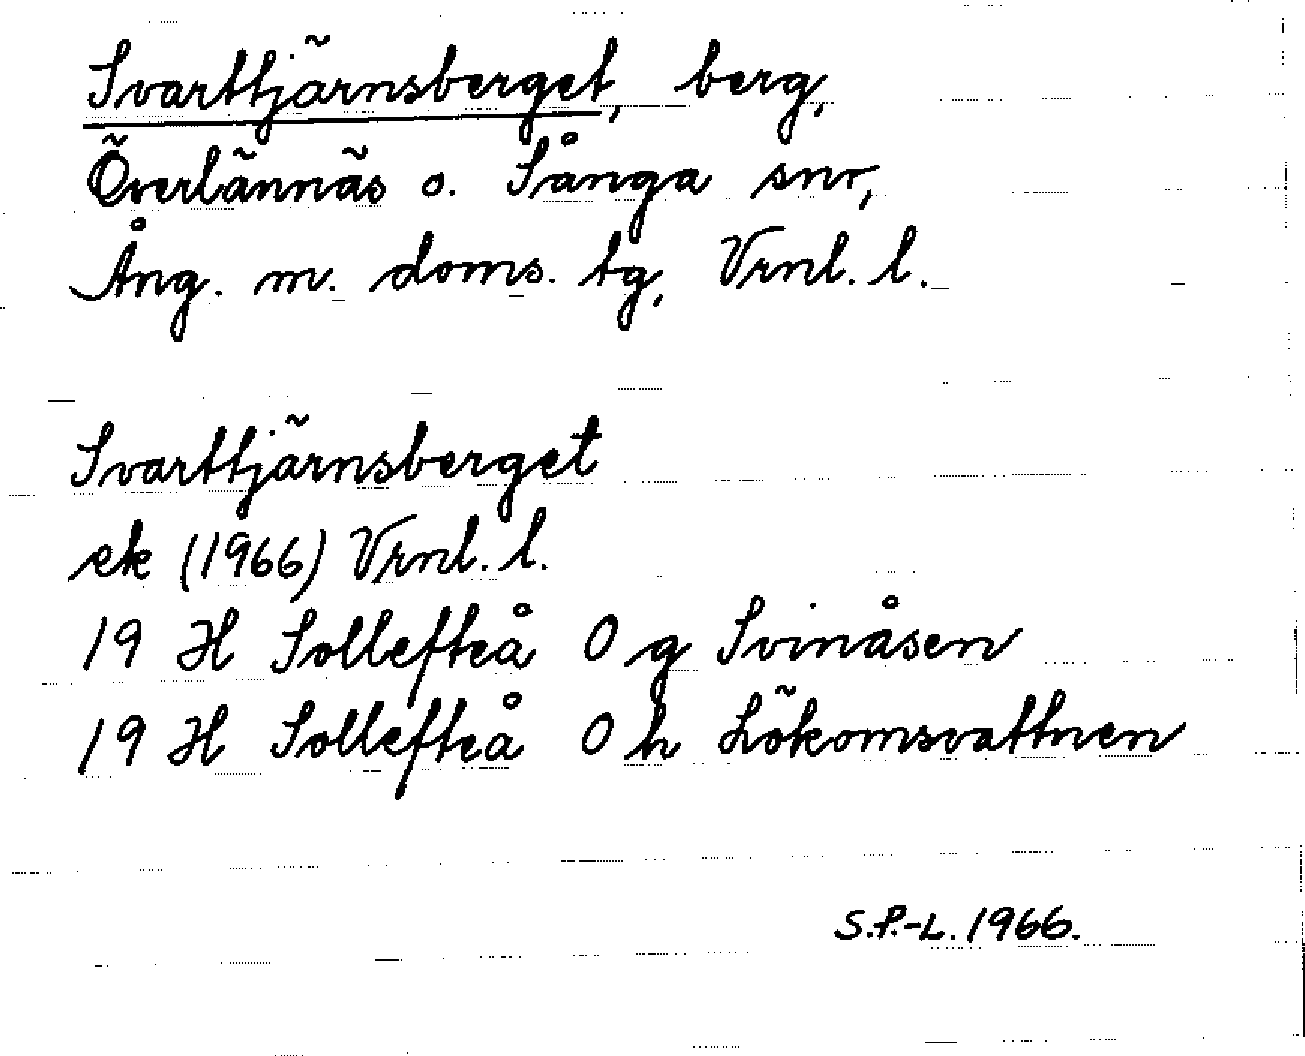 Svarttjärnsberget, berg,
Överlännäs o. Sånga snr,
Ång. m. doms. tg, Vrnl. l.
Svarttjärnsberget
ek (1966) Vrnl. l.
19 H Sollefteå 0 g Svinåsen
19 H Sollefteå 0 h Lökomsvattnen
S.P.-L. 1966.